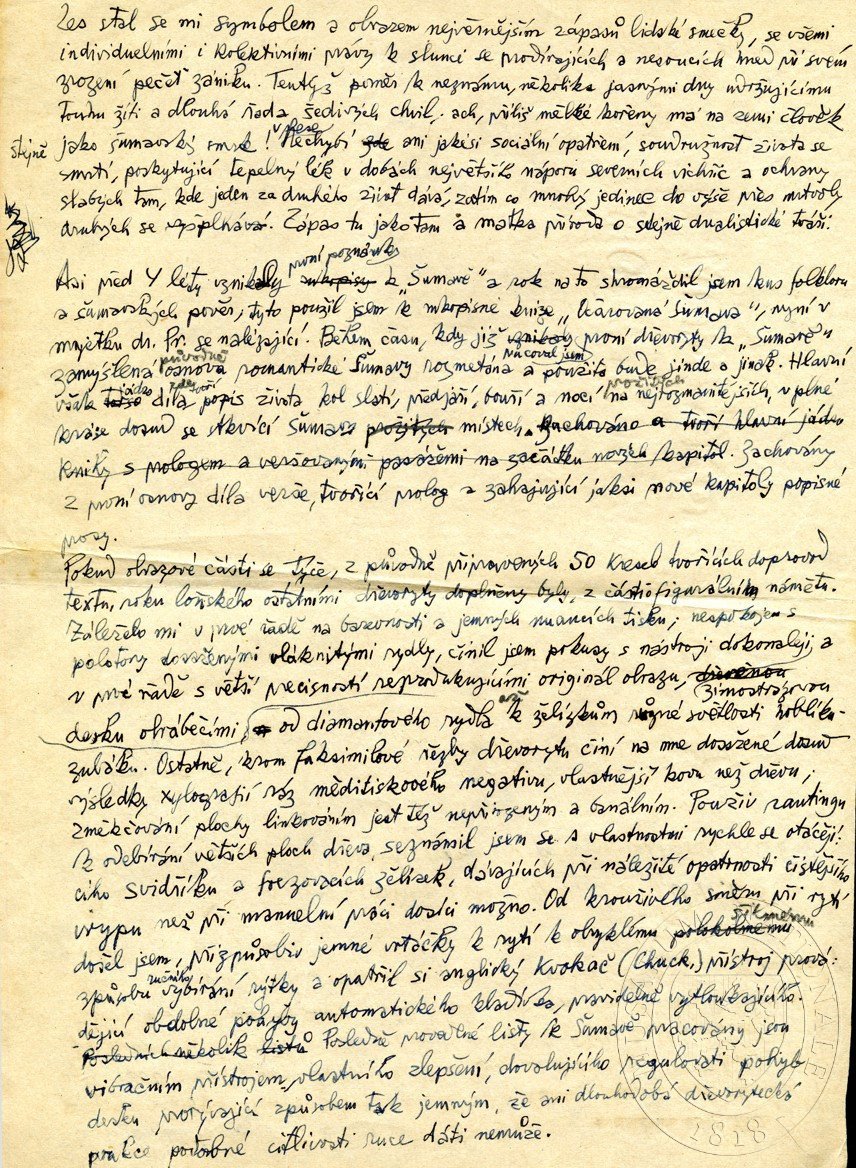 Les stal se mi symbolem a obrazem nejvěrnějším zápasů lidské smečky, se všemi
individuelními i kolektivními právy k slunci se prodírajících a nesoucích hned při svém
zrození pečeť zániku. Tentýž poměr k neznámu, několika jasnými dny udržujícímu
touhu žíti a dlouhá řada šedivých chvil, ach, příliš mělké kořeny má na zemi člověk
stejně
jako šumavský smrk! V lese Nechybí zde ani jakési sociální opatření, soudružnost života se
smrtí, poskytující tepelný lék v dobách největšího náporu severních vichřic a ochrany
slabých tam, kde jeden za druhého život dává, zatím co mnohý jedinec do výše přes mrtvoly
druhých se vyšplhává. Zápas tu jako tam a matka příroda o stejně dualistické tváři.
Asi před 4 léty vznikaly první poznámky rukopisy k „Šumavě“ a rok na to shromáždil jsem kus folkloru
a šumavských pověr, tyto použil jsem k rukopisné knize „Učarovaná Šumava“, nyní v
majetku dr. Pr. se nalézající. Během času, kdy již vznikaly první dřevoryty k „Šumavě“
původně
zamyšlená osnova romantické Šumavy rozmetána a použita bude jinde a jinak. Hlavní
však jádro díla tvoří popis života kol slatí, předjaří, bouří a nocí prožitých na nejrozmanitějších, v plné
kráse dosud se skvící Šumavy prožitých místech. Zachováno a tvoří hlavní jádro
knihy s prologem a veršovanými pasážemi na začátku nových kapitol. Zachovány
z první osnovy díla verše, tvořící prolog a zahajující jaksi nové kapitoly popisné
prosy.
Pokud obrazové části se týče, z původně připravených 50 kreseb tvořících doprovod
textu, roku loňského ostatními dřevoryty doplněny byly, z části figurálním námětu.
Záleželo mi v prvé řadě na barevnosti a jemných nuancích tisku; nespokojen s
polotóny dosaženými vláknitými rydly, činil jsem pokusy s nástroji dokonaleji a
v prvé řadě s větší precisností reprodukujícími originál obrazu, dřevěnou
zimostrázovou
desku obrábějícími, od diamantového rydla až k želízkům různé světlosti
zubáku. Ostatně, krom faksimilové řezby dřevorytu činí na mne dosažené dosud
výsledky xylografií ráz měditiskového negativu, vlastnější kovu než dřevu;
změkčování plochy linkováním jest též nepřirozeným a banálním. Použiv rautingu
k odebírání větších ploch dřeva, seznámil jsem se s vlastnostmi rychle se otáčejí-
cího svidříku a frezovacích želízek, dávajících při náležité opatrnosti čistějšího
vrypu než při manuelní práci docíli možno. Od krouživého směru při rytí
došel jsem, přizpůsobiv jemné vrtáčky k rytí k obyklému polokolmému
šikmému
způsobu ručního vybírání rýžky a opatřil si anglický Kvokač (Chuck.) přístroj prová-
dějící obdobné pohyby automatického kladívka, pravidelně vytloukajícího.
Posledních několik listů Posledně provedené listy k Šumavě pracovány jsou
vibračním přístrojem vlastního zlepšení, dovolujícího regulovati pohyb
desku prorývající způsobem tak jemným, že ani dlouhodobá dřevorytecká
práce podobné citlivosti ruce dáti nemůže.
1818